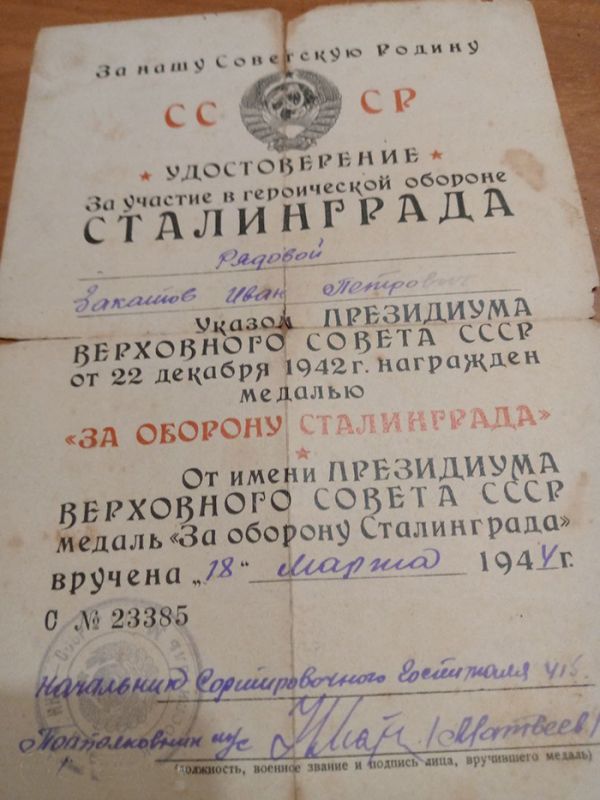 За нашу Советскую Родину
СССР
УДОСТОВЕРЕНИЕ
За участие в героической обороне
СТАЛИНГРАДА
Рядовой
Закатов Иван Петрович
Указом ПРЕЗИДИУМА
ВЕРХОВНОГО СОВЕТА СССР
от 22 декабря 1942 г. награжден
медалью
«ЗА ОБОРОНУ СТАЛИНГРАДА»
От имени ПРЕЗИДИУМА
ВЕРХОВНОГО СОВЕТА СССР
медаль «За оборону Сталинграда»
вручена „18" марта 1944 г.
С № 23385
Начальник Сортировочного Госпиталя
Подполковник м/с (Матвеев)
(должность, военное звание и подпись лица, вручившего медаль)